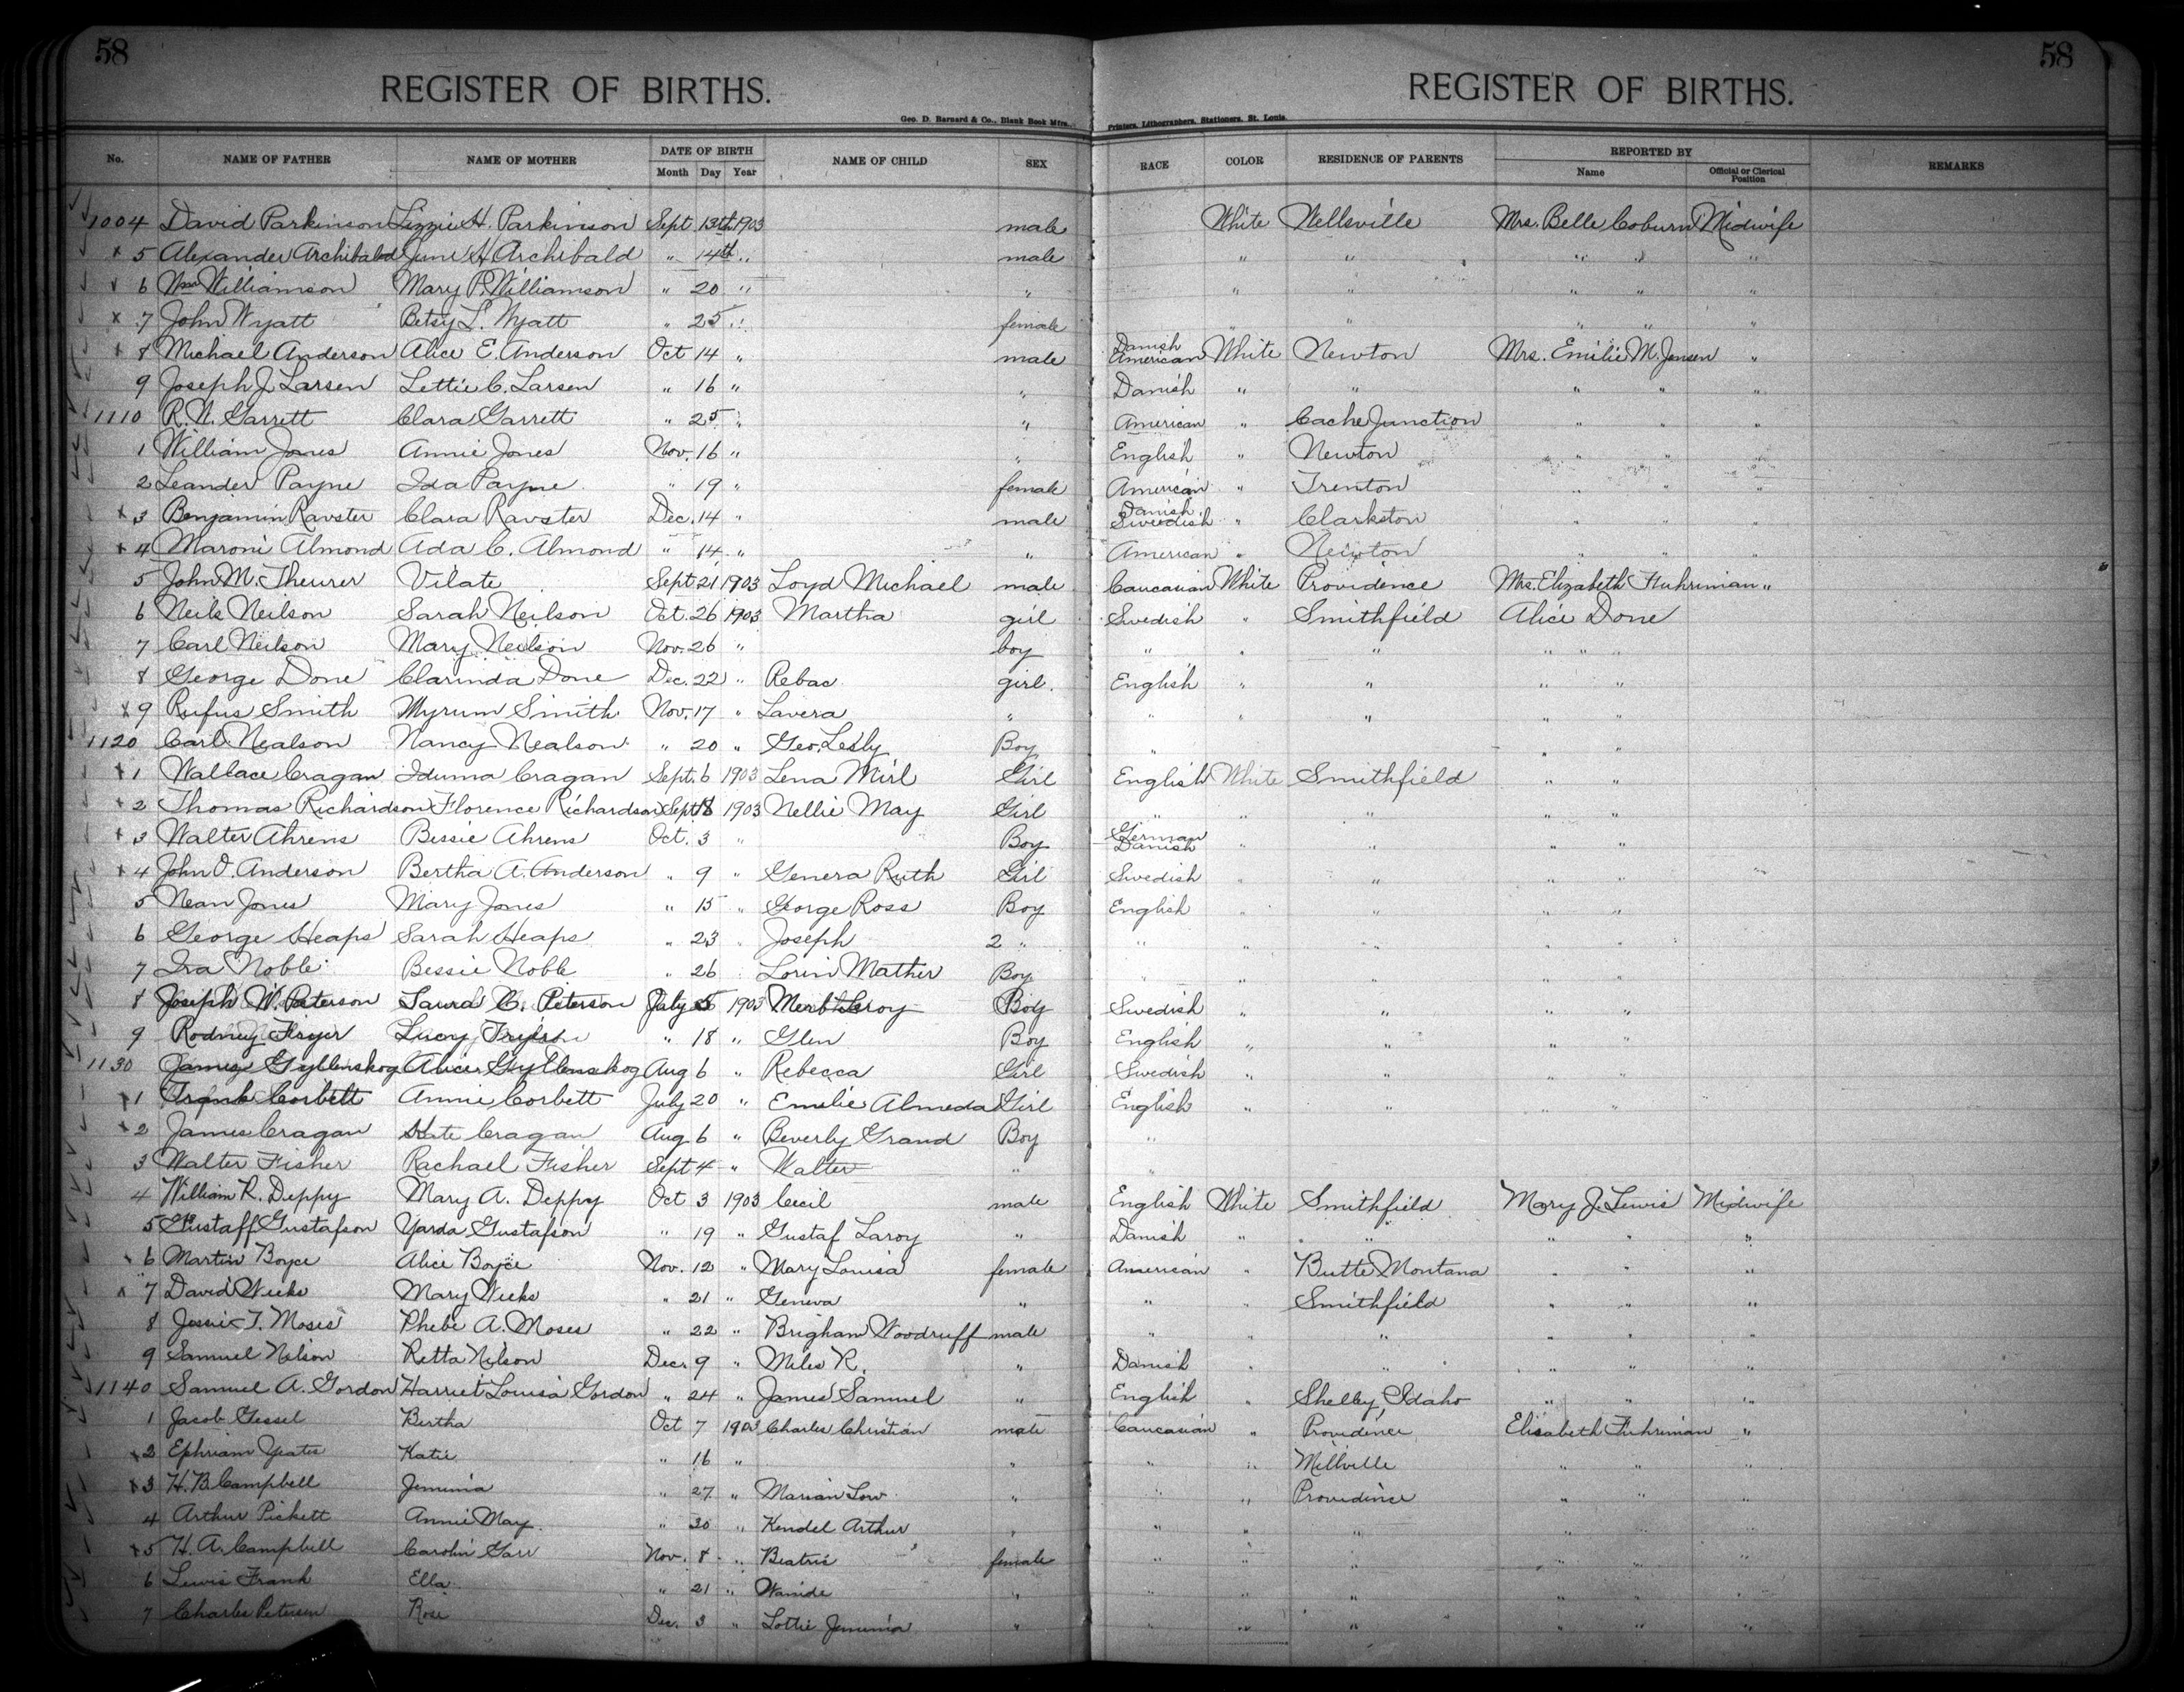 58
58
REGISTER OF BIRTHS.
REGISTER OF BIRTHS.
Geo. D. Barnard & Co., Blank Book Mfrs.,
Printers, Lithographers, Stationers, St. Louis.
No. NAME OF FATHER NAME OF MOTHER DATE OF BIRTH Month Day Year NAME OF CHILD SEX RACE COLOR RESIDENCE OF PARENTS REPORTED BY Name Official or Clerical Position REMARKS
1004 David Parkinson Lizzie H. Parkinson Sept 13th 1903 male White Wellsville Mrs. Belle Coburn Midwife
x 5 Alexander Archibald June H Archibald " 14th " male " " " " "
6 Wm Williamson Mary P. Williamson " 20 " " " " " " "
x 7 John Wyatt Betsy L. Wyatt " 25 " female " " " " "
x 8 Michael Anderson Alice E. Anderson Oct 14 " male Danish American White Newton Mrs. Emilie M. Jensen "
9 Joseph J. Larsen Lettie C. Larsen " 16 " " Danish " " " " "
1110 R. N. Garrett Clara Garrett " 25 " " American " Cache Junction " " "
1 William Jones Annie Jones Nov. 16 " " English " Newton " " "
2 Leander Payne Ida Payne " 19 " female American " Trenton " " "
x 3 Benjamin Ravster Clara Ravster Dec. 14 " male Danish Swedish " Clarkston " " "
x 4 Maroni Almond Ada C. Almond " 14 " " American " Newton " " "
5 John M. Theurer Vilate Sept 21 1903 Loyd Michael male Caucasian White Providence Mrs. Elizabeth Fuhriman "
6 Neils Neilson Sarah Neilson Oct. 26 1903 Martha girl Swedish " Smithfield Alice Done
7 Carl Neilson Mary Neilson Nov. 26 " boy " " " " "
8 George Done Clarinda Done Dec. 22 " Rebac girl. English " " " "
x 9 Rufus Smith Myrum Smith Nov. 17 " Lavera " " " " " "
1120 Carl Nealson Nancy Nealson " 20 " Geo. Lesly Boy " " "
x 1 Wallace Cragan Iduma Cragan Sept. 6 1903 Lena Mirl Girl English White Smithfield " "
x 2 Thomas Richardson Florence Richardson Sept 18 1903 Nellie May Girl " " " " "
x 3 Walter Ahrens Bessie Ahrens Oct. 3 " Boy German Danish " " " "
x 4 John O. Anderson Bertha A. Anderson " 9 " Genera Ruth Girl Swedish " " " "
5 Nean Jones Mary Jones " 15 " George Ross Boy English " " " "
6 George Heaps Sarah Heaps " 23 " Joseph 2 " " " " " "
7 Ira Noble Bessie Noble " 26 " Lorin Mather Boy " " " " "
8 Joseph W. Peterson Laura C. Peterson July 5 1903 Leroy Boy Swedish " " " "
9 Rodney Fryer Lucy " 18 " Glen Boy English " " " "
1130 James Gyllenskog Alice Gyllenskog Aug 6 " Rebecca Girl Swedish " " " "
x 1 Frank Corbett Annie Corbett July 20 " Emilie Almeda Girl English " " " "
x 2 James Cragan Kate Cragan Aug 6 " Beverly Grand Boy "
3 Walter Fisher Rachael Fisher Sept 4 " Walter " "
4 William R. Deppy Mary A. Deppy Oct 3 1903 Cecil male English White Smithfield Mary J. Lewis Midwife
5 Gustaff Gustafson Yarda Gustafson " 19 " Gustaf Laroy " Danish " " " " "
x 6 Martin Boyce Alice Boyce Nov. 12 " Mary Louisa female American " Butte Montana " " "
x 7 David Weeks Mary Weeks " 21 " Geneva " " " Smithfield " " "
8 Jessie T. Moses Phebe A. Moses " 22 " Brigham Woodruff male " " " " " "
9 Samuel Nelson Retta Nelson Dec. 9 " Miles R. " Danish " " " " "
1140 Samuel A. Gordon Harriet Louisa Gordon " 24 " James Samuel " English " Shelley, Idaho " " "
1 Jacob Gessel Bertha Oct 7 1903 Charles Christian male Caucasian " Providence Elisabeth Fuhriman "
x 2 Ephriam Yeates Katie " 16 " " " " Millville " " "
x 3 H. B. Campbell Jemima " 27 " Marian Low " " " Providence " " "
4 Arthur Pickett Annie May. " 30 " Kendel Arthur " " " " " " "
x 5 H. A. Campbell Carolin Garr Nov. 8 " Beatris female " " " " " "
6 Lewis Frank Ella " 21 " Wanide " " " " " " "
7 Charles Petersen Rose Dec. 3 " Lottie Jemima " " " " " " "